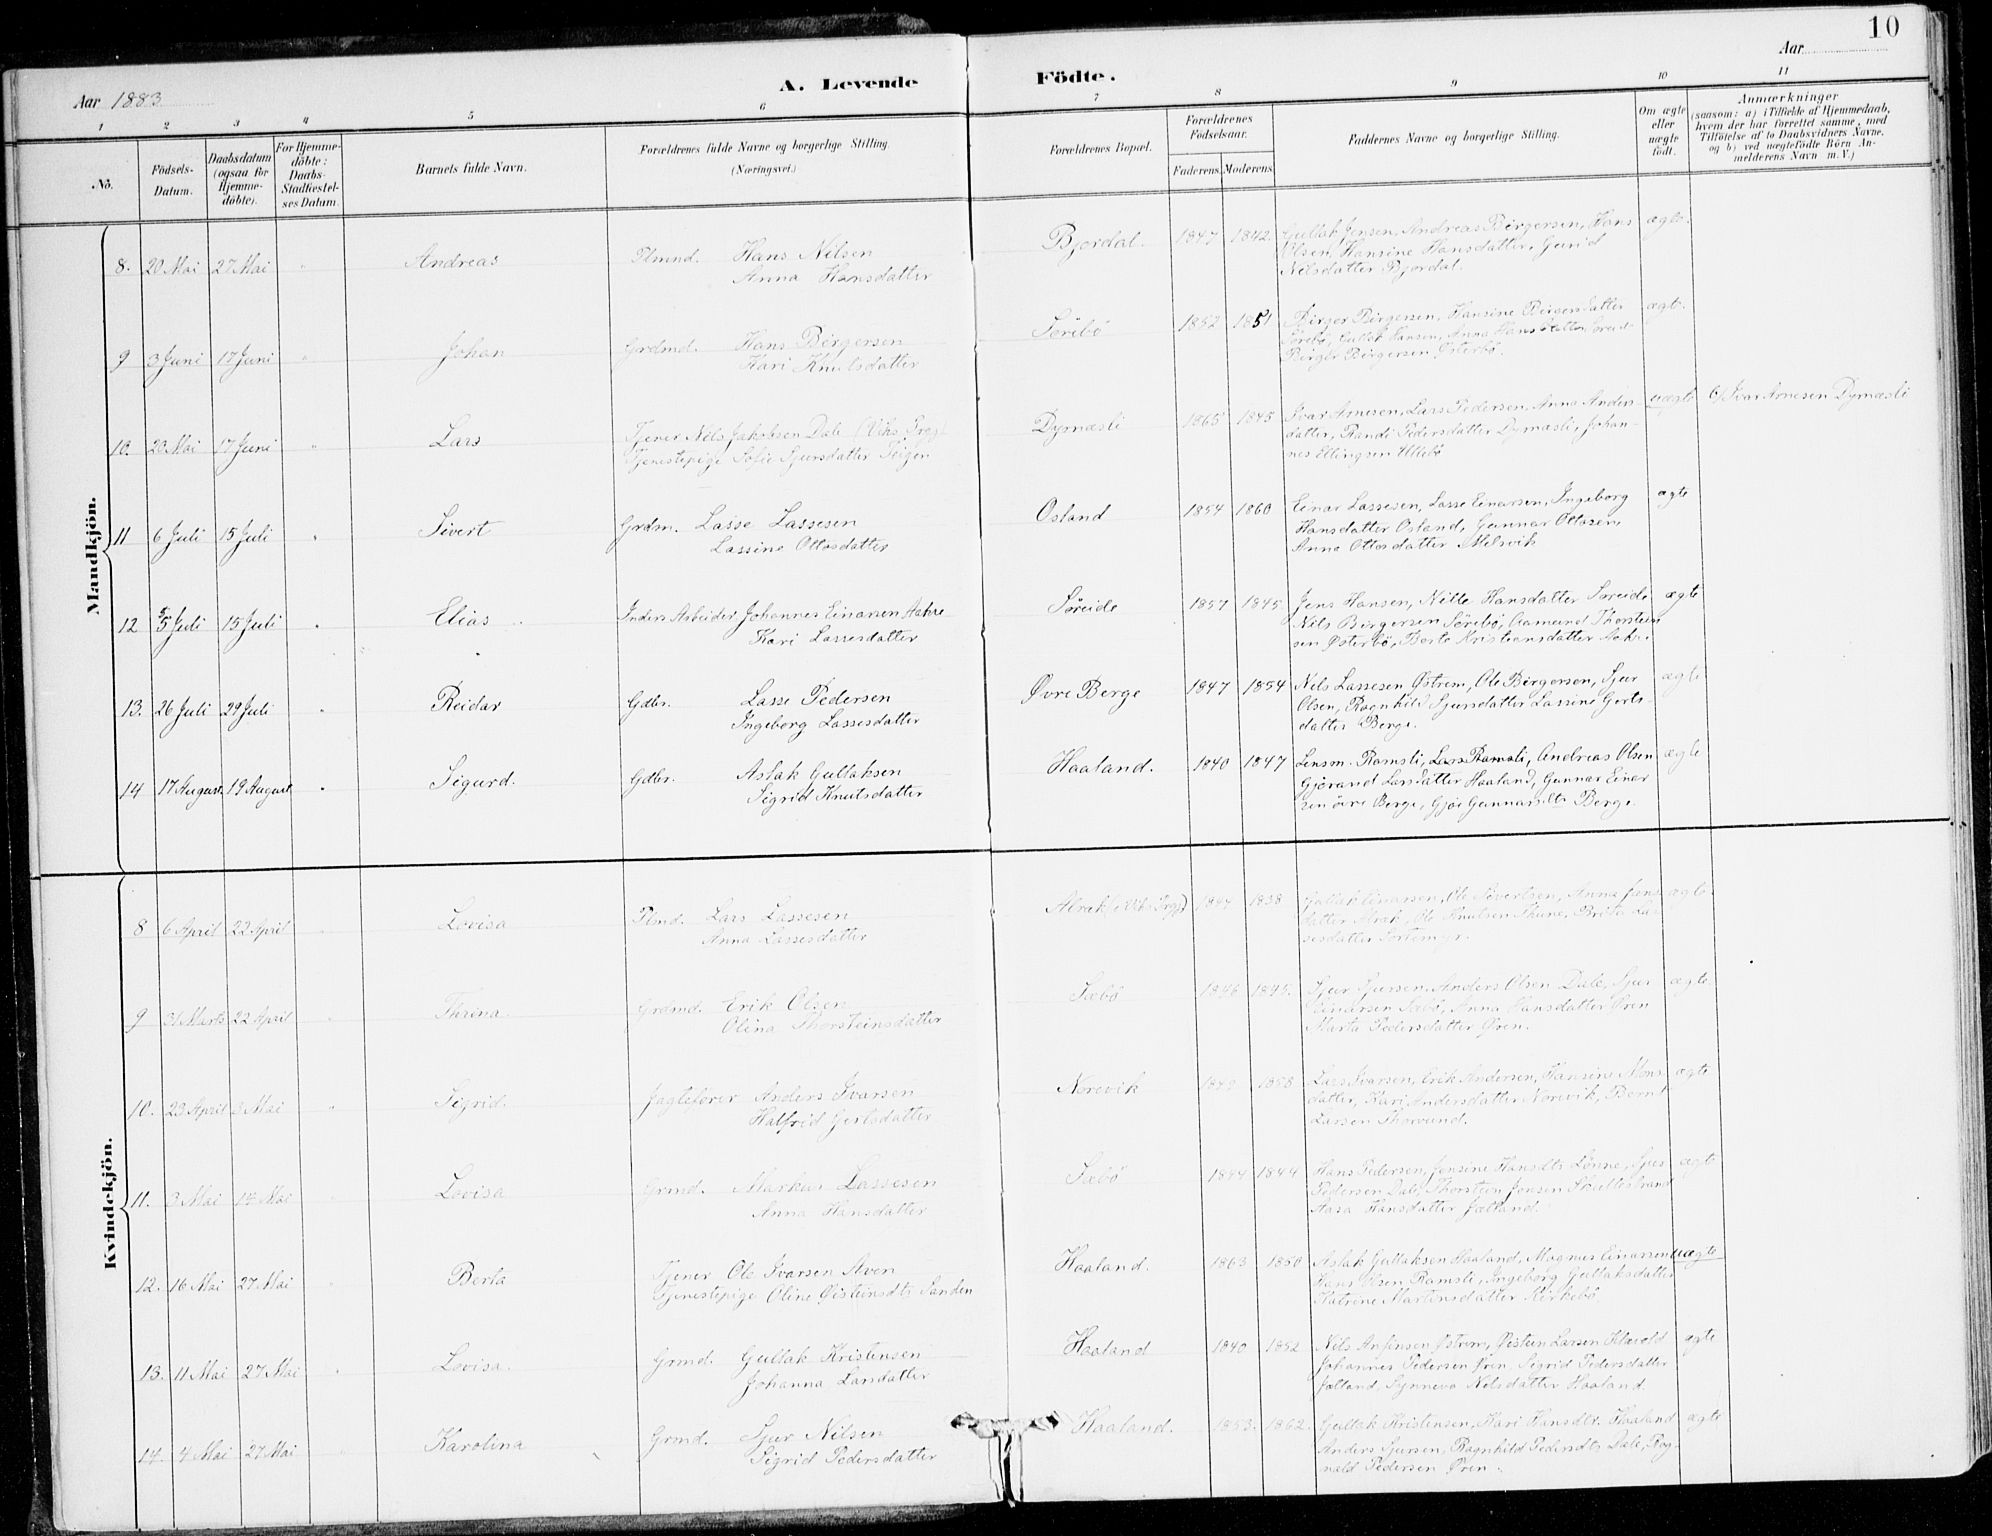 10
Aar 1883
A. Levende Födte.
Aar
1 2 3 4 5 6 7 8 9 10 11
No.
Födsels-Datum.
Daabsdatum (ogsaa for Hjemmedöbte).
For Hjemmedöbte: Daabs-Stadfæstelses Datum.
Barnets fulde Navn.
Forældrenes fulde Navne og borgerlige Stilling. (Næringsvei.)
Forældrenes Bopæl.
Forældrenes Födselsaar.
Faderens. Moderens.
Faddernes Navne og borgerlige Stilling.
Om ægte eller uægte födt.
Anmærkninger
(saasom: a) i Tilfælde af Hjemmedaab, hvem der har forrettet samme, med Tilföielse af to Daabsvidners Navne, og b) ved uægtefödte Börn Anmelderens Navn m. V.)
Mandkjön.
8. 20 Mai 27 Mai " Andreas Plmnd. Hans Nilsen Bjordal. 1847 1842. Gullak Jensen, Andreas Birgersen, Hans ægte.
Anna Hansdatter Olsen, Hansine Hansdatter, Gurid
Nilsdatter Bjordal.
9 3 Juni 17 Juni " Johan Grdmd. Hans Birgersen Sørebø 1852 1851 Birger Birgersen, Hansine Birgersdatter ægt.
Kari Knutsdatter Sørebø, Gullak Hansen, Anna Hansdatter
Birger Birgersen Østerbø.
10. 20 Mai 17 Juni " Lars Tjener Nils Jakobsen Dale (Viks Præg) Dymæsli 1865 1845 Ivar Arnesen, Lars Pedersen, Anna Anders uægte b) Ivar Arnesen Dymæsli
Tjenestepige Sofie Sjursdatter Teigen datter, Randi Pedersdatter Dymæsli, Johan-
nes Ellingsen
11 6 Juli 15 Juli " Sivert Grdm. Lasse Lassesen Osland 1854 1860 Einar Lassesen, Lasse Einarsen, Ingeborg ægte
Lassine Ottosdatter Hansdatter Osland, Gunnar Ottosen,
Anna Ottosdatter Melsvik
12 5 Juli 15 Juli " Elias Inders Arbeider Johannes Einarsen Aakre Søreide 1857 1845. Jens Hansen, Nille Hansdatter Søreide ægte
Kari Lassesdatter Nils Birgersen Sørebø, Aamund Thorstein
sen Østerbø, Berta Kristiansdatter Aakre.
13. 26 Juli 29 Juli " Reidar Gdbr. Lasse Pedersen Øvre Berge 1847 1854 Nils Lassesen Østrem, Ole Birgersen, Sjur ægte
Ingeborg Lassesdatter Olsen, Ragnhild Sjursdatter Lassine Gerts-
datter Berge.
14 17 August 19 August " Sigurd. Gdbr. Aslak Gullaksen Haaland. 1840 1847 Lensm. Ramsli, Lars Ramsli, Andreas Olsen ægte
Sigrid Knutsdatter Gjørand Larsdatter Haaland, Gunnar Einar
sen øvre Berge, Gjøa Gunnarsdtr Berge.
Kvindekjön.
8 6 April 22 April " Lovisa Plmd. Lars Lassesen Alrak (Viks Prgj) 1847 1838 Gullak Einarsen, Ole Sivertsen, Anna Jens ægte.
Anna Lassesdatter datter Alrak, Ole Knutsen Thune, Brita Las-
sesdatter Sortemyr.
9 31 Marts 22 April " Thrina. Grdmd. Erik Olsen Sæbø 1846 1845. Sjur Sjursen, Anders Olsen Dale, Sjur ægte.
Olina Thorsteinsdatter Einarsen Sæbø, Anna Hansdatter Øren
Marta Pedersdatter Øren.
10. 23 April 3 Mai " Sigrid. Jagtefører Anders Ivarsen Norevik 1849 1858 Lars Ivarsen, Erik Andersen, Hansine Mons- ægte
Halfrid Gertsdatter datter, Kari Andersdatter Norevik, Bernt
Larsen Thorvund.
11. 3 Mai 14 Mai Lovisa Grmd. Markus Lassesen Sæbø 1844 1844 Hans Pedersen, Jensine Hansdtr Lønne, Sjur ægte
Anna Hansdatter Pedersen Dale, Thorstein Jensen Skultestrand
Aasa Hansdatter Jætland.
12. 16 Mai 27 Mai Berta Tjener Ole Ivarsen Aven Haaland. 1863 1850 Aslak Gullaksen Haaland, Magnus Einarsen uægte
Tjenestepige Oline Øisteinsdtr Sanden Hans Olsen Ramsli, Ingeborg Gullaksdatter
Katrine Martinsdatter Kirkebø
13. 11 Mai 27 Mai Lovisa. Grmd. Gullak Kristensen Haaland 1840 1852 Nils Anfinsen Østrem, Øistein Larsen ægte
Johanna Larsdatter Johannes Pedersen Øren, Sigrid Pedersdatter
Jætland, Synneva Nilsdatter Haaland
14. 4 Mai 27 Mai Karolina Grmd. Sjur Nilsen Haaland. 1853. 1862. Gullak Kristensen, Kari Hansdtr. Haaland ægte
Sigrid Pedersdatter Anders Sjursen, Ragnhild Pedersdtr Dale, Rog-
nald Pedersen Øren.